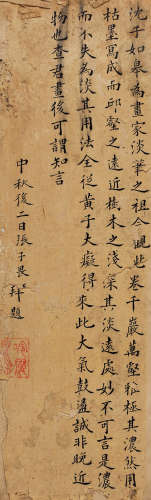 沈子如皋為畫家淡筆之祖今觀些卷千巖萬壑秾極其濃然用
枯墨寫成而邱壑之遠近樹木之淺深其淡遠處妙不可言是濃
而不失為淡其用法全從黃子大癡得來此大氣鼓盪誠非晚近
物也查君畫後可謂知言
中秋後二日張子畏拜題